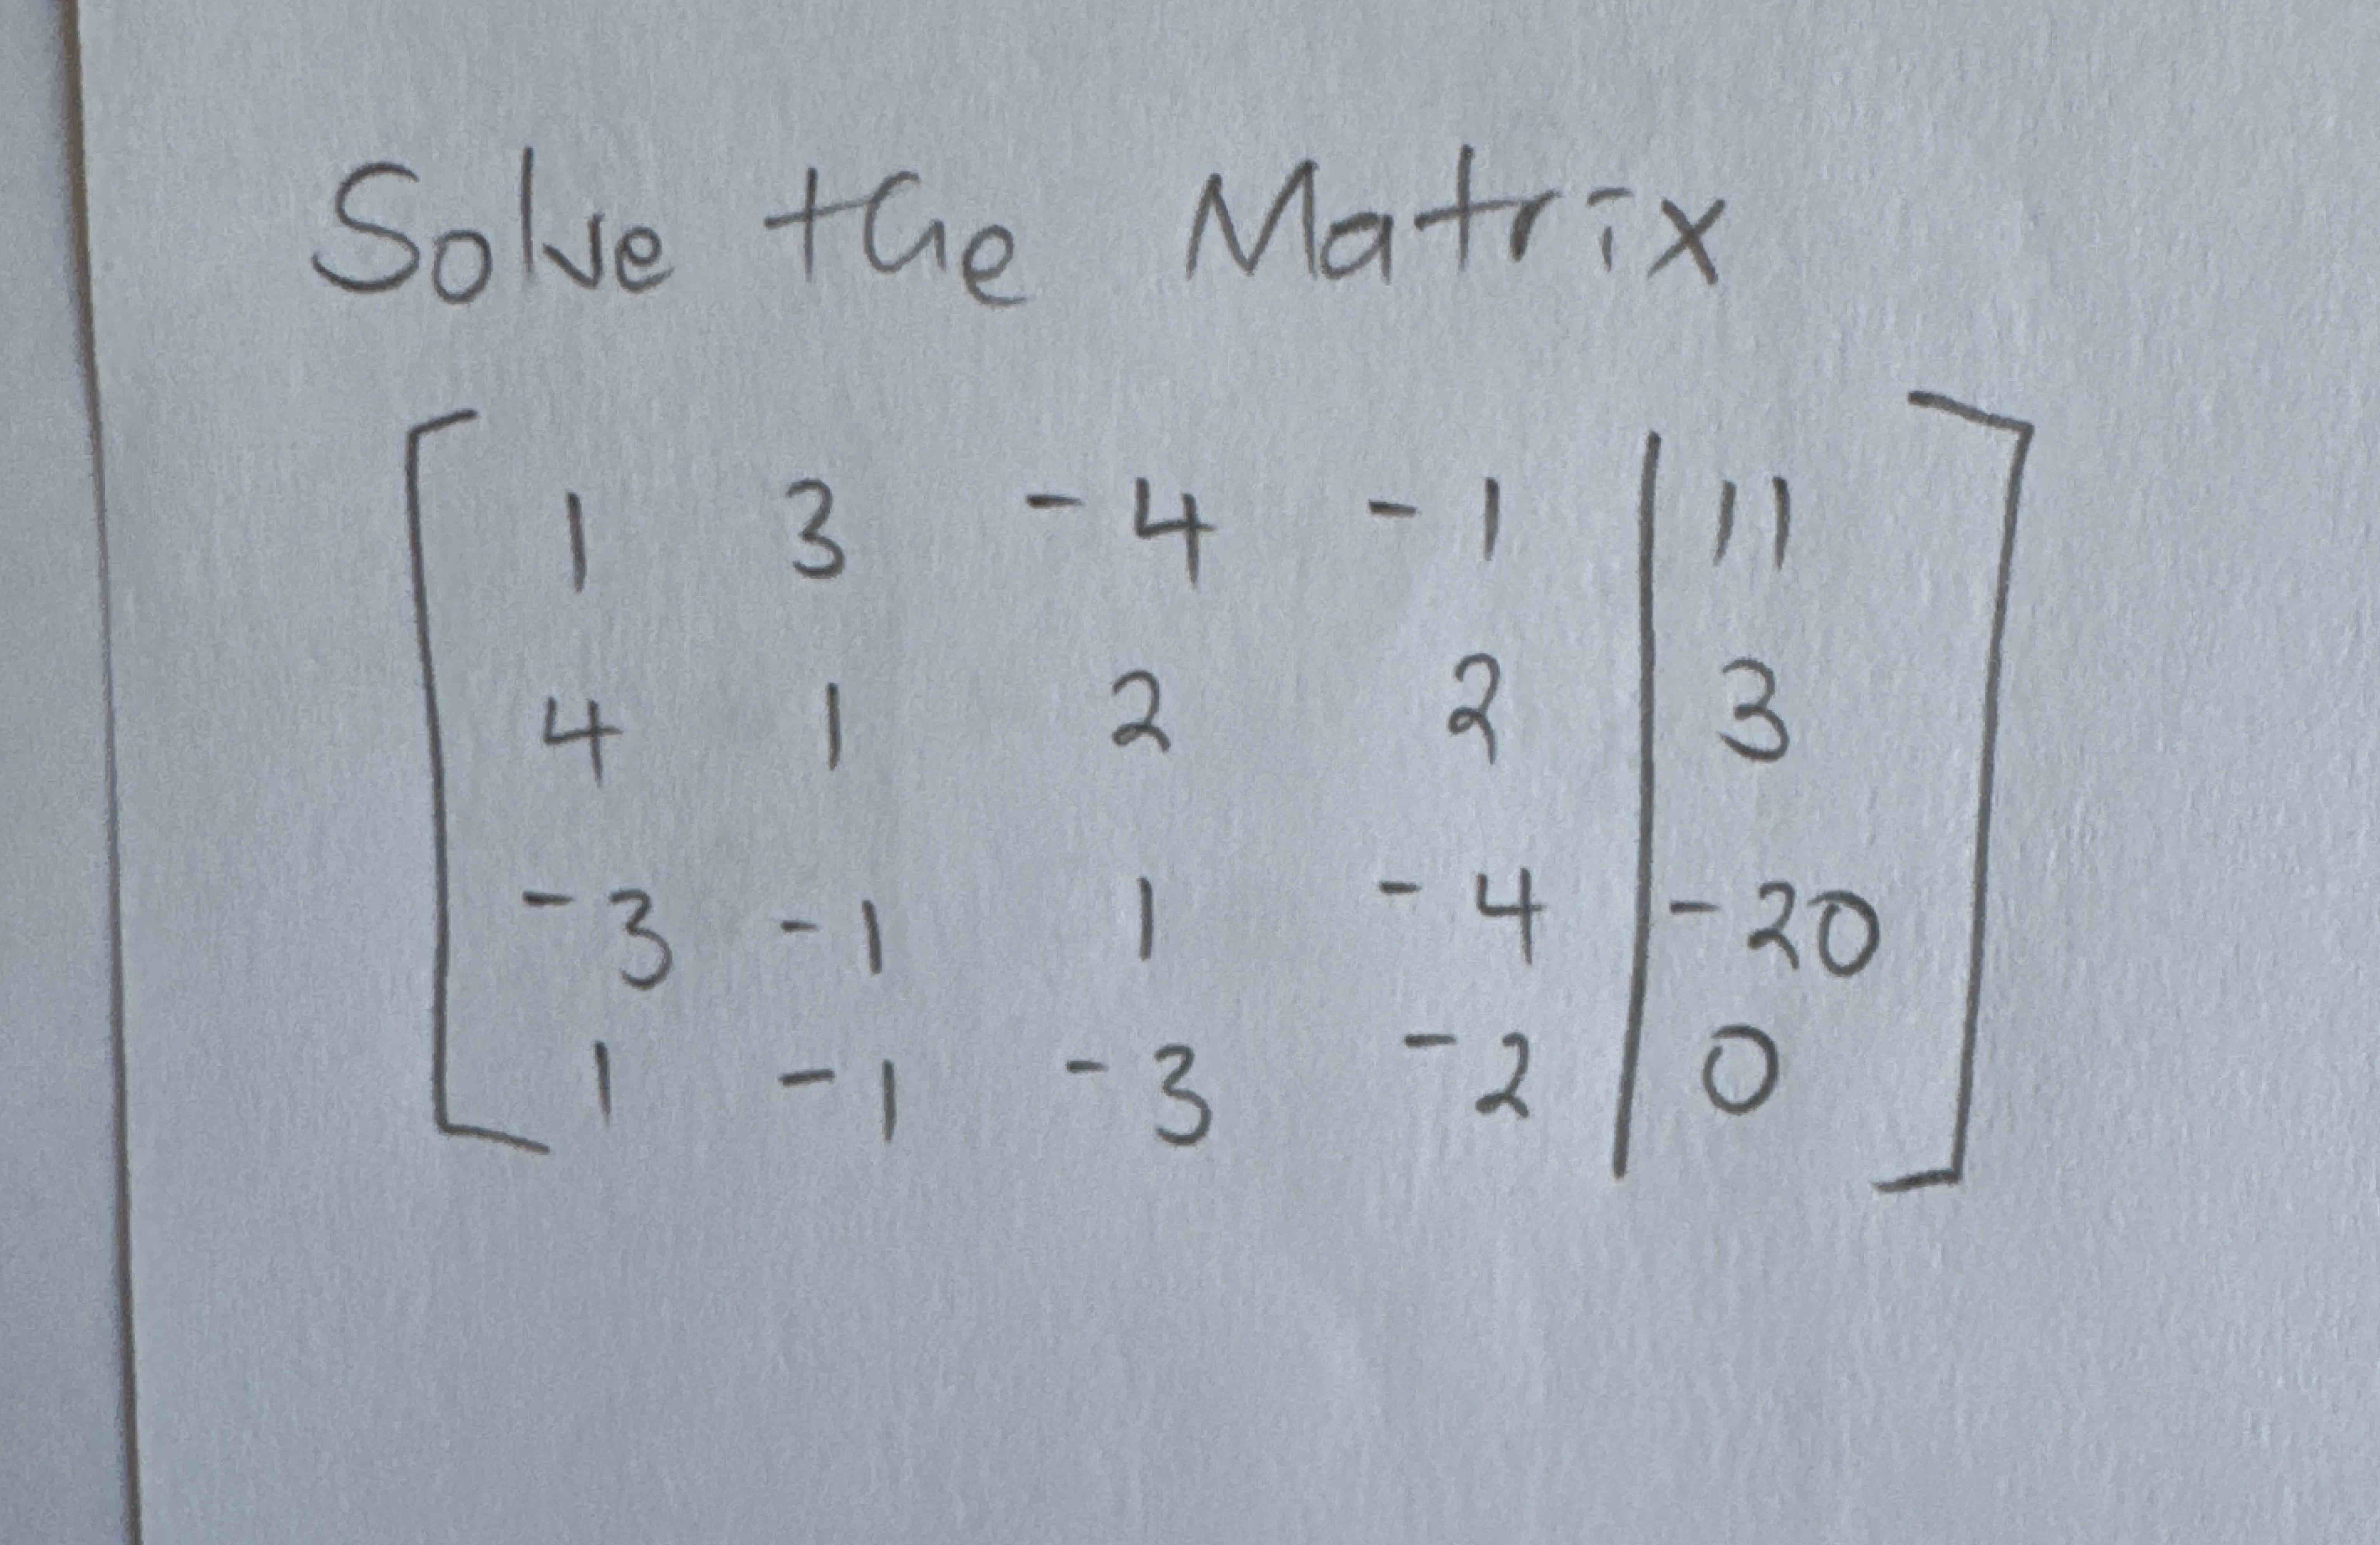 Solve the Matrix
1 3 -4 -1 | 11
4 1 2 2 | 3
-3 -1 1 -4 | -20
1 -1 -3 -2 | 0